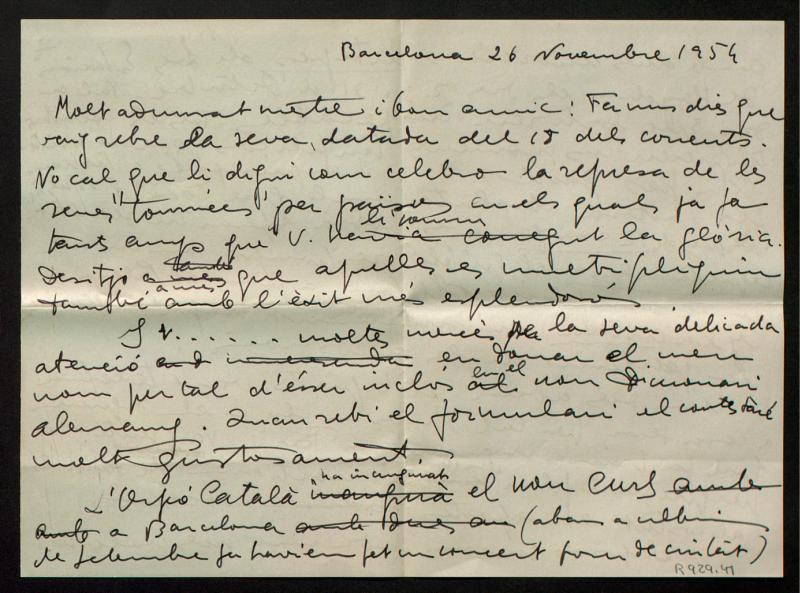 Barcelona 26 Novembre 1954
Molt admirat mestre i bon amic: Fa uns dies que
vaig rebre la seva, datada del 18 dels corrents.
No cal que li digui com celebro la represa de les
seves "tournées" per països en els quals ja fa
li
tants anys que V. havia conegut la glòria.
Desitjo a més que aquelles es multipliquin
també amb l'èxit més esplendorós
S v. . . . . . moltes mercès per la seva delicada
atenció en donar el meu
nom per tal d'ésser inclòs en el nou Diccionari
alemany. Quan rebi el formulari el contestaré
molt gustosament.
ha inaugurat
L'Orfó Català inaugurà el nou curs amb
amb a Barcelona amb dues au (abans a ultims
de setembre ja haviem fet un concert fora de ciutat)
R 929.41